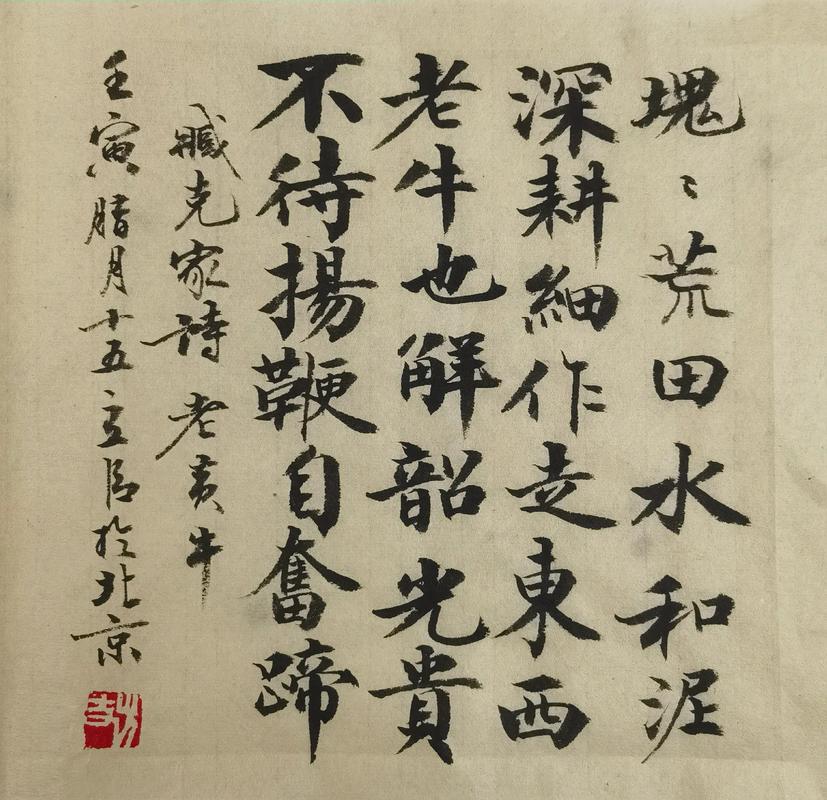 塊〻荒田水和泥
深耕細作走東西
老牛也解韶光貴
不待揚鞭自奮蹄
臧克家詩 老黃牛
壬寅腊月十五立信於北京